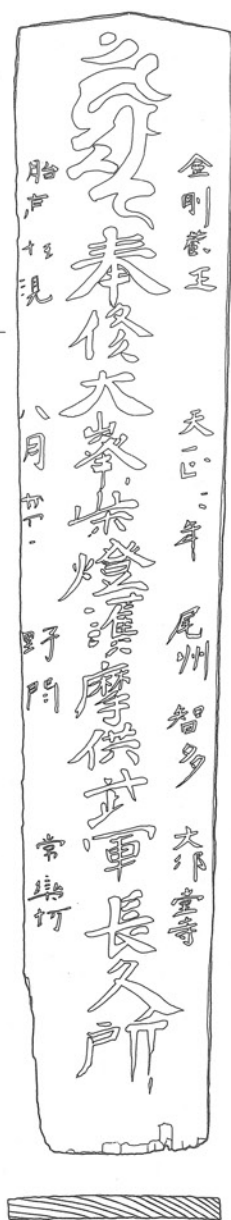 金剛蔵王 天正二年 尾州 智多 大御堂寺
奉修大峯柴燈護摩供武軍長久所
胎 現 八月 野間 常樂坊